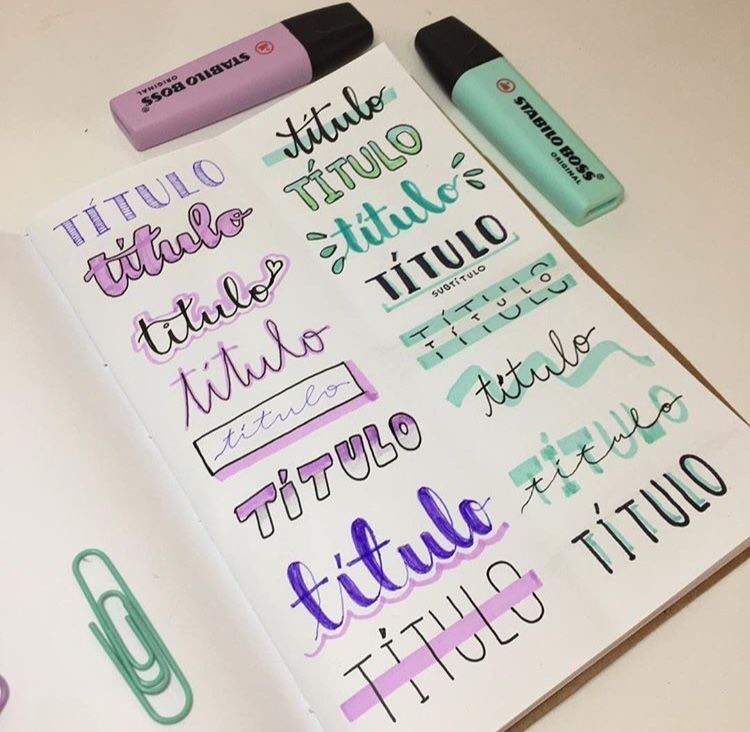 STABILO BOSS
ORIGINAL
STABILO BOSS
ORIGINAL
TÍTULO
título
título
título
título
TÍTULO
título
TÍTULO
título
TÍTULO
título
TÍTULO
SUBTÍTULO
TÍTULO
TÍTULO
título
TÍTULO
título
TÍTULO